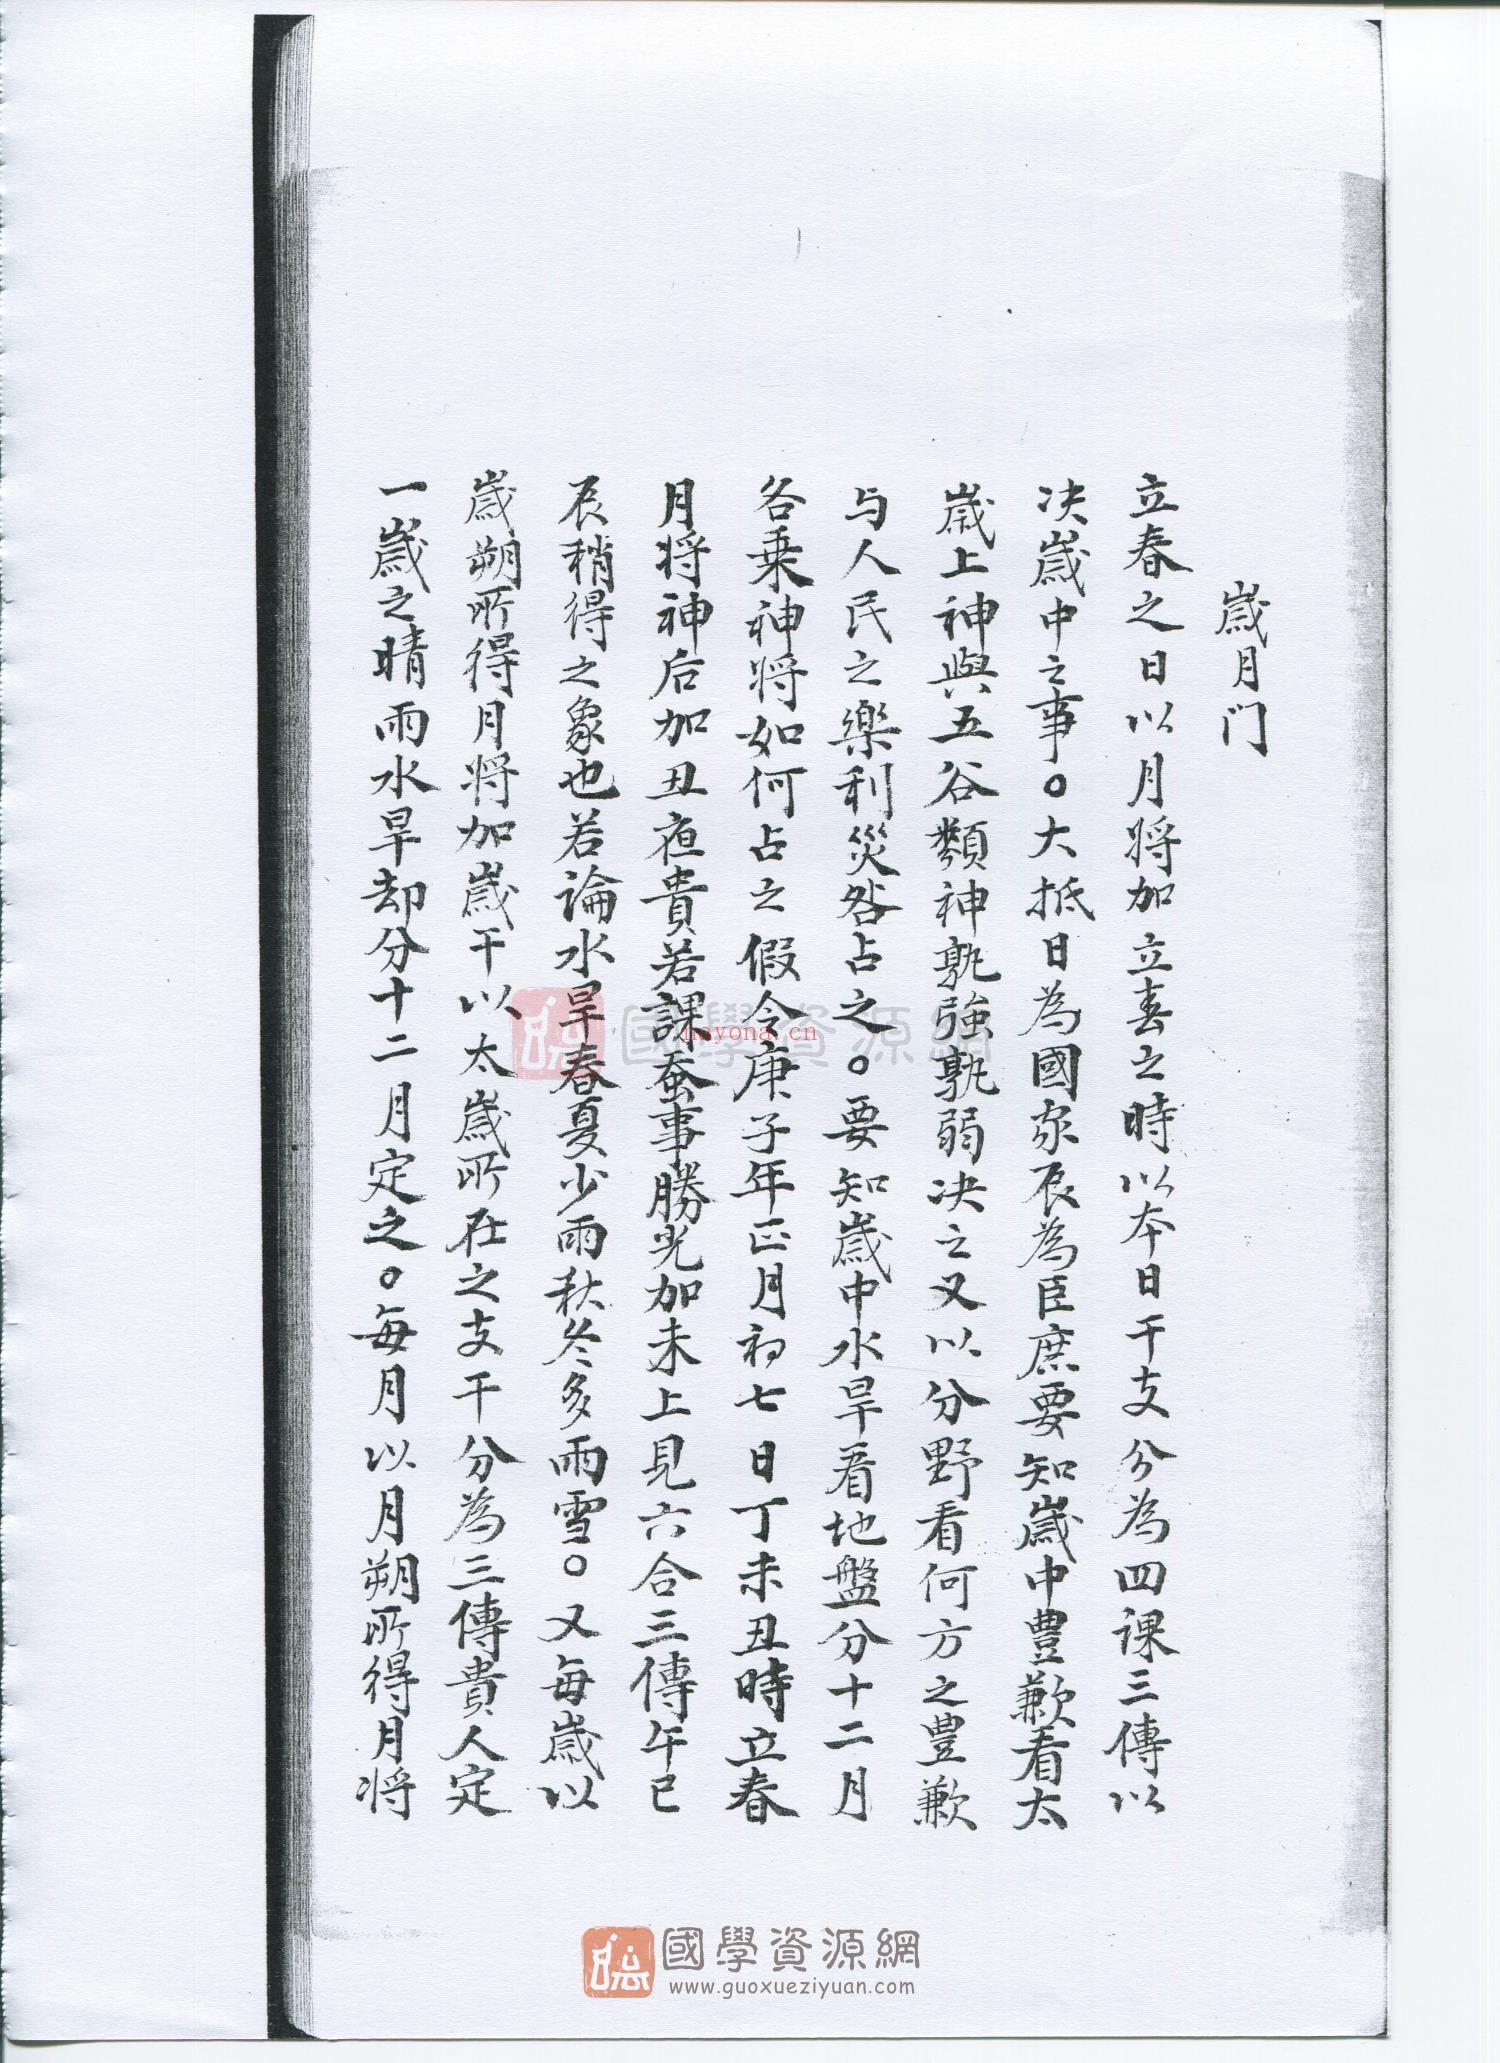 歲月门
立春之日以月將加立春之時以本日干支分為四課三傳以
决歲中之事。大抵日為國家辰為臣庶要知歲中豊歉看太
歲上神與五谷類神孰強孰弱决之又以分野看何方之豊歉
与人民之樂利災咎占之。要知歲中水旱看地盤分十二月
各乗神將如何占之假令庚子年正月初七日丁未丑時立春
月将神后加丑夜貴若課蚕事勝光加未上見六合三傳午巳
辰稍得之象也若論水旱春夏少雨秋冬多雨雪。又每歲以
歲朔所得月將加歲干以太歲所在之支干分為三傳貴人定
一歲之晴雨水旱却分十二月定之。每月以月朔所得月將
國學資源網
nayona.cn
國學資源網
www.guoxueziyuan.com